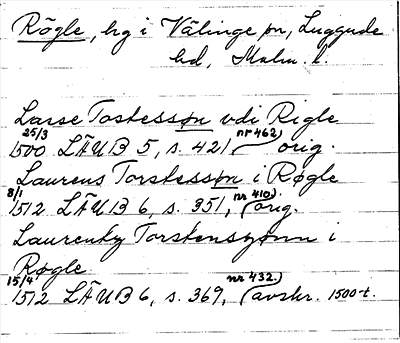 Rögle, hg i Välinge sn, Luggude
hd, Malm. l.
Lasse Tostessøn vdi Rigle
25/3 1500 LÄUB 5, s. 421 (nr 462) orig.
Laurens Torstessøn i Røgle
8/1 1512 LÄUB 6, s. 351, (nr 410) orig.
Laurentz Torstenszønn i
Røgle
15/4 1512 LÄUB 6, s. 369, (nr 432.) avskr. 1500-t.